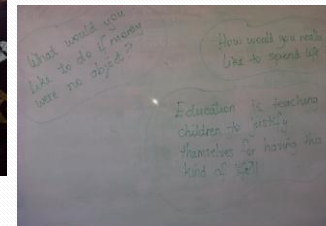 What would you
like to do if money
were no object?
How would you really
like to spend life
Education is teaching
children to
themselves for having this
kind of